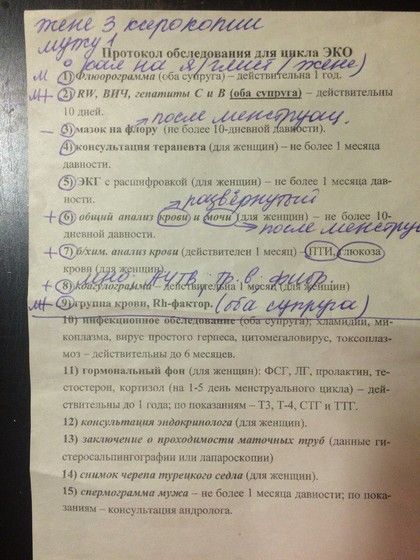 жене 3 ксерокопии
мужу 1
Протокол обследования для цикла ЭКО
кал на я/глист (жене)
м 1) Флюорограмма (оба супруга) – действительна 1 год.
м+ 2) RW, ВИЧ, гепатиты С и В (оба супруга) – действительны
10 дней.
после менструац.
– 3) мазок на флору (не более 10-дневной давности).
4) консультация терапевта (для женщин) – не более 1 месяца
давности.
5) ЭКГ с расшифровкой (для женщин) – не более 1 месяца дав-
ности.
развёрнутый
+ 6) общий анализ крови и мочи (для женщин) – не более 10-
дневной давности.
после менструа
+ 7) б/хим. анализ крови (действителен 1 месяц) – ПТИ, глюкоза
крови (для женщин)
+ 8) коагулограмма – действительна 1 месяц (для женщин)
м+ 9) группа крови, Rh-фактор. (оба супруга)
10) инфекционное обследование (оба супруга): хламидии, ми-
коплазма, вирус простого герпеса, цитомегаловирус, токсоплаз-
моз – действительны до 6 месяцев.
11) гормональный фон (для женщин): ФСГ, ЛГ, пролактин, те-
стостерон, кортизол (на 1-5 день менструального цикла) – дей-
ствительны до 1 года; по показаниям – Т3, Т-4, СТГ и ТТГ.
12) консультация эндокринолога (для женщин).
13) заключение о проходимости маточных труб (данные ги-
стеросальпингографии или лапароскопии)
14) снимок черепа турецкого седла (для женщин).
15) спермограмма мужа – не более 1 месяца давности; по пока-
заниям – консультация андролога.